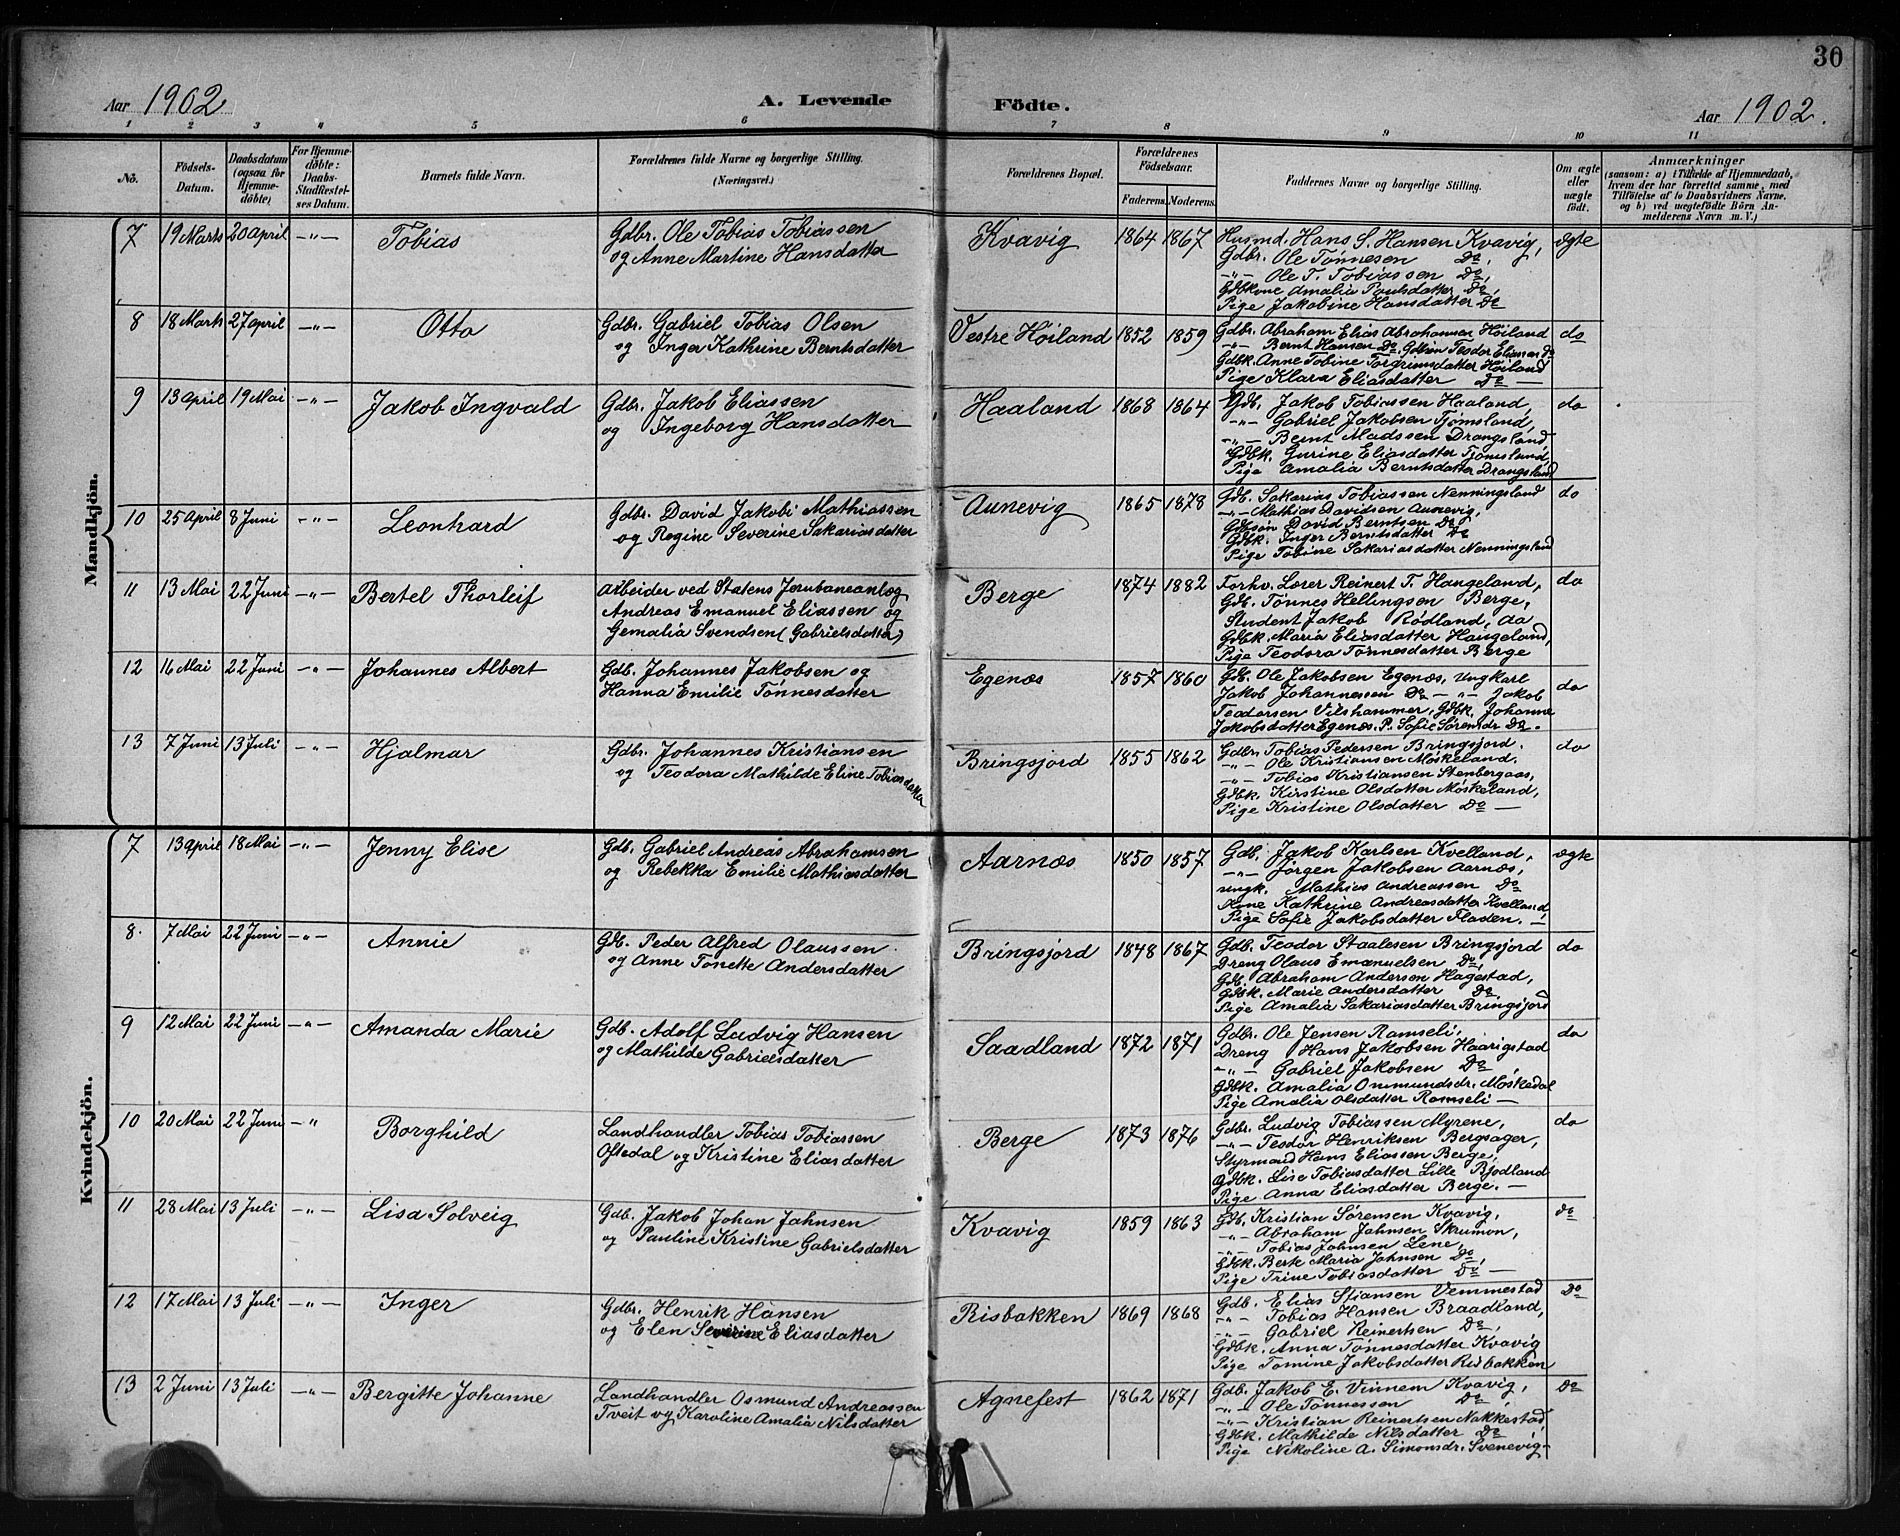 30
Aar 1902 A. Levende Födte. Aar 1902.
1 2 3 4 5 6 7 8 9 10 11
No. Födsels-Datum. Daabsdatum (ogsaa for Hjemmedöbte) For Hjemmedöbte: Daabs-Stadfestelses Datum. Barnets fulde Navn. Forældrenes fulde Navne og borgerlige Stilling. (Næringsvei.) Forældrenes Bopæl. Forældrenes Födselsaar. Faderens. Moderens. Faddernes Navne og borgerlige Stilling. Om ægte eller uægte födt. Anmærkninger (saasom: a) i Tilfælde af Hjemmedaab, hvem der har forrettet samme, med Tilföielse af to Daabsvidners Navne, og b) ved uægtefödte Börn Anmelderens Navn m. V.)
Mandkjön.
7 19 Marts 20 April -"- Tobias Gdbr. Ole Tobias Tobiassen Kvavig 1864 1867 Husmd. Hans S. Hansen Kvavig, ægte
og Anne Martine Hansdatter Gdbr. Ole Tønnesen Do,
-"- Ole T. Tobiassen Do,
Gdbkone Amalia Paulsdatter Do,
Pige Jakobine Hansdatter Do
8 18 Marts 27 April -"- Otto Gdbr. Gabriel Tobias Olsen Vestre Høiland 1852 1859 Gdbr. Abraham Elias Abrahamsen Høiland do
og Inger Kathrine Berntsdatter -"- Bernt Hansen Do, Gdbsøn Teodor Eliassen Do
Gdbk. Anne Tobine Torgrimsdatter Høiland
Pige Klara Eliasdatter Do —
9 13 April 19 Mai -"- Jakob Ingvald Gdbr. Jakob Eliassen Haaland 1868 1864 Gdb. Jakob Tobiassen Haaland, do
og Ingeborg Hansdatter -"- Gabriel Jakobsen Tjømsland,
-"- Bernt Madssen Drangsland
Gdbk. Gurine Eliasdatter Tjømsland,
Pige Amalia Berntsdatter Drangsland
10 25 April 8 Juni -"- Leonhard Gdbr. David Jakobi Mathiassen Aunevig 1865 1878 Gdb. Sakarias Tobiassen Nenningsland do
og Regine Severine Sakariasdatter -"- Mathias Davidsen Aunevig,
Gdbsøn David Berntsen Do,
Gdbk. Inger Berntsdatter Do
Pige Tobine Sakariasdatter Nenningsland
11 13 Mai 22 Juni -"- Bertel Thorleif Arbeider ved Statens Jernbaneanlæg Berge 1874 1882 Forhv. Lærer Reinert T. Haugeland, do
Andreas Emanuel Eliassen og Gdb. Tønnes Hellingsen Berge,
Gemalia Svendsen (Gabrielsdatter) Student Jakob Rødland, da
Gdbk. Maria Eliasdatter Haugeland,
Pige Teodora Tønnesdatter Berge
12 16 Mai 22 Juni -"- Johannes Albert Gdb. Johannes Jakobsen og Egenæs 1857 1860 Gdb. Ole Jakobsen Egenæs, Ungkarl do
Hanna Emilie Tønnesdatter Jakob Johannessen Do — -"- Jakob
Teodorsen Vilshammer, Gdbk. Johanne
Jakobsdatter Egenæs. P. Sofie Sørensdr. Do.
13 7 Juni 13 Juli -"- Hjalmar Gdbr. Johannes Kristiansen Bringsjord 1855 1862 Gdbr. Tobias Pedersen Bringsjord. do
og Teodora Mathilde Eline Tobiasdatter -"- Ole Kristiansen Møskeland,
-"- Tobias Kristiansen Stenbergaas,
Gdbk. Kirstine Olsdatter Møskeland,
Pige Kristine Olsdatter Do —
Kvindekjön.
7 13 April 18 Mai -"- Jenny Elise Gdb. Gabriel Andreas Abrahamsen Aarnæs 1850 1857 Gdb. Jakob Karlsen Kvelland, ægte
og Rebekka Emilie Mathiasdatter -"- Jørgen Jakobsen Aarnæs,
Ungk. Mathias Andreassen Do
Kone Kathrine Andreasdatter Kvelland,
Pige Sofie Jakobsdatter Fladen. —
8. 7 Mai 22 Juni -"- Annie Gdb. Peder Alfred Olaussen Bringsjord 1848 1867 Gdb. Teodor Staalesen Bringsjord do
og Anne Tonette Andersdatter Dreng Olaus Emanuelsen Do,
Gdb. Abraham Andersen Hagestad,
Gdbk. Marie Andersdatter Do,
Pige Amalia Sakariasdatter Bringsjord
9 12 Mai 22 Juni -"- Amanda Marie Gdb. Adolf Ludvig Hansen Saadland 1872 1871 Gdbr. Ole Jensen Ramseli, do
og Mathilde Gabrielsdatter Dreng Hans Jakobsen Haarigstad
-"- Gabriel Jakobsen Do,
Gdbk. Amalia Onsmundsdr. Møskedal
Pige Amalia Olsdatter Ramseli —
10 20 Mai 22 Juni -" Borghild Landhandler Tobias Tobiassen Berge 1873 1876 Gdbr. Ludvig Tobiassen Myrene, do
Oftedal og Kristine Eliasdatter -"- Teodor Henriksen Bergsager,
Styrmand Hans Eliassen Berge,
Gdbk. Lise Tobiasdatter Lille Bjodland
Pige Anna Eliasdatter Berge. —
11 28 Mai 13 Juli -"- Lisa Solveig Gdb. Jakob Johan Jahnsen Kvavig 1859 1863 Gdb. Kristian Sørensen Kvavig, do
og Pauline Kristine Gabrielsdatter -"- Abraham Jahnsen Skrumon,
-"- Tobias Johnsen Lene,
Gdbk. Berte Maria Johnsen Do,
Pige Trine Tobiasdatter Do —
12 17 Mai 13 Juli -"- Inger Gdbr. Henrik Hansen Risbakken 1869 1868 Gdb. Elias Stiansen Vemmestad Do
og Elen Severine Eliasdatter -"- Tobias Hansen Braadland,
-"- Gabriel Reinertsen Do,
Gdbk. Anna Tønnesdatter Kvavig
Pige Tomine Jakobsdatter Risbakken
13 2 Juni 13 Juli -"- Bergitte Johanne Landhandler Osmund Andreassen Agnefest 1862 1871 Gdb. Jakob E. Vinnem Kvavig, Do
Tveit og Karoline Amalia Nilsdatter -"- Ole Tønnessen Do,
-"- Kristian Reinertsen Nakkestad,
Gdbk. Mathilde Nilsdatter Do,
Pige Nikoline A. Simonsdr. Svenevig-